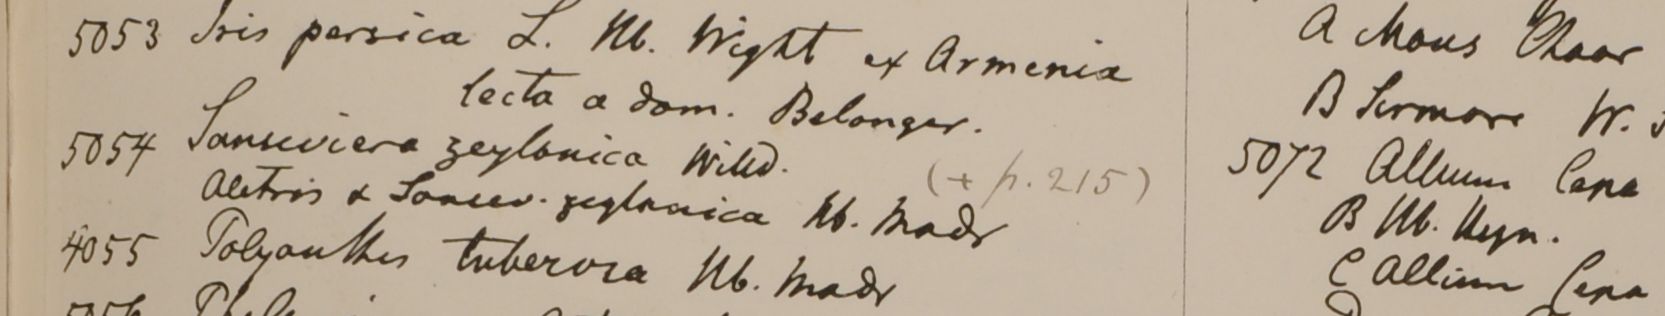 5053 Iris persica L. Hb. Wight ex Armenia
lecta a dom. Belanger.
5054 Sanseviera zeylanica Willd.
(+ p. 215)
Aletris & Sansev. zeylanica Hb. Madr
4055 Polyanthes tuberosa Hb. Madr
5056
A Mons
B Sirmore W.
5072 Allium Cepa
B Hb. Heyn.
C Allium Cepa